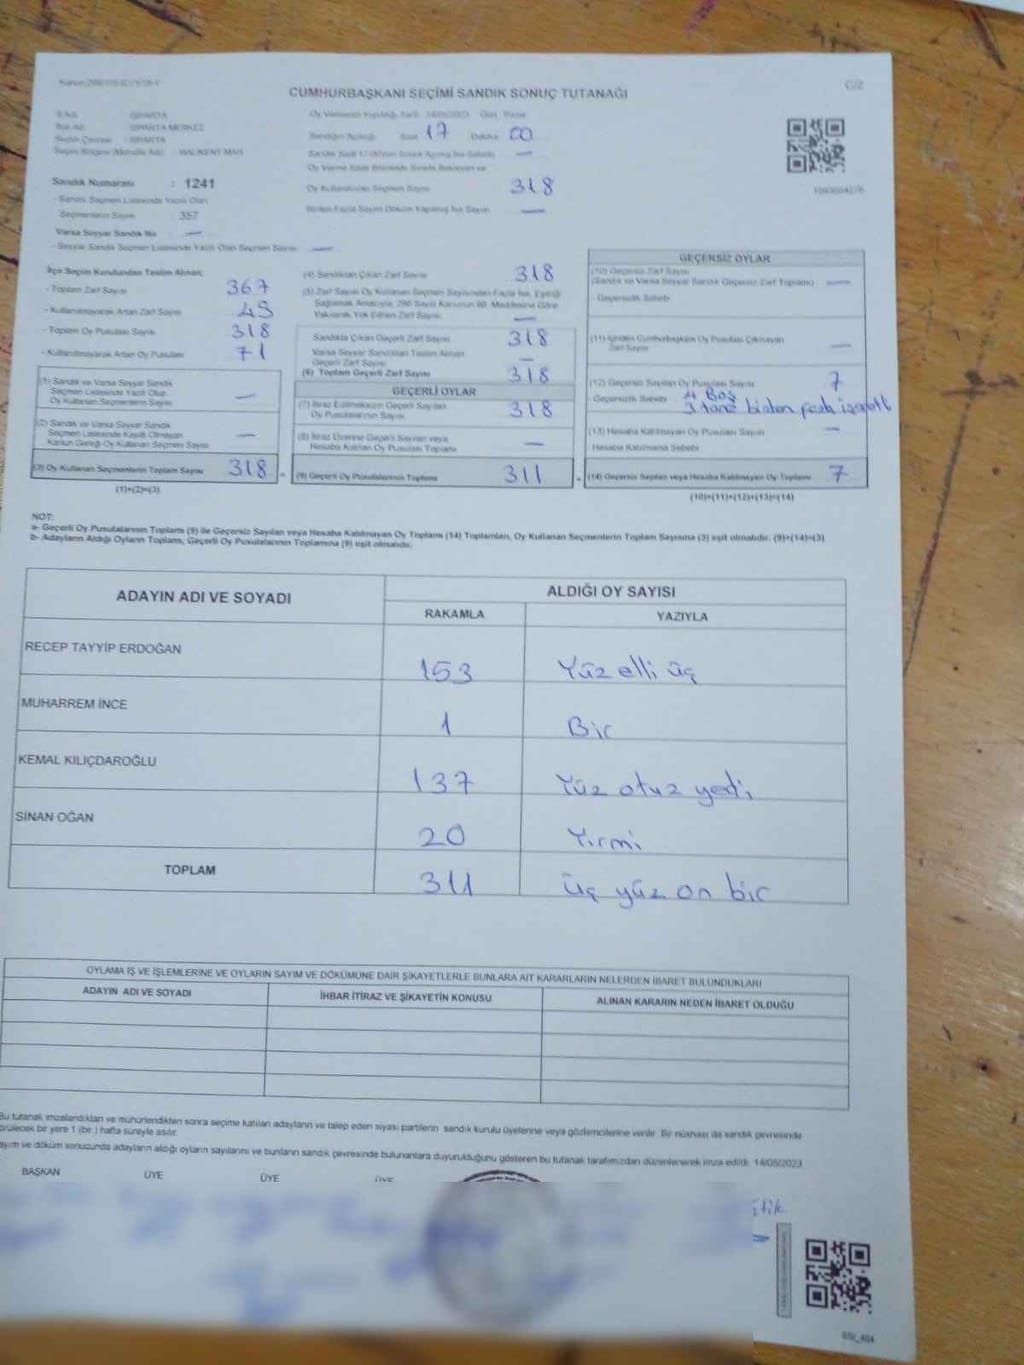 C/2
CUMHURBAŞKANI SEÇİMİ SANDIK SONUÇ TUTANAĞI
İl Adı : ISPARTA
İlçe Adı : ISPARTA MERKEZ
Seçim Çevresi : ISPARTA
HALIKENT MAH.
Sandık Numarası : 1241
Sandık Seçmen Listesinde Yazılı Olan
Seçmenlerin Sayısı 357
Varsa Seyyar Sandık No —
- Seyyar Sandık Seçmen Listesinde Yazılı Olan Seçmen Sayısı —
Oy Vermenin Yapıldığı Tarih 14/05/2023 Gün: Pazar
Sandığın Açıldığı Saat 17 Dakika 00
Oy Kullandırılan Seçmen Sayısı 318
Birden Fazla Sayım Döküm Yapılmış İse Sayısı —
İlçe Seçim Kurulundan Teslim Alınan;
- Toplam Zarf Sayısı 367
- Kullanılmayarak Artan Zarf Sayısı 49
- Toplam Oy Pusulası Sayısı 318
- Kullanılmayarak Artan Oy Pusulası 71
(1) Sandık ve Varsa Seyyar Sandık
Seçmen Listesinde Yazılı Olup
Oy Kullanan Seçmenlerin Sayısı —
(2) Sandık ve Varsa Seyyar Sandık
Seçmen Listesinde Kayıtlı Olmayan
Kanun Gereği Oy Kullanan Seçmen Sayısı —
(3) Oy Kullanan Seçmenlerin Toplam Sayısı 318
(1)+(2)=(3)
(4) Sandıktan Çıkan Zarf Sayısı 318
(5) Zarf Sayısı Oy Kullanan Seçmen Sayısından Fazla İse, Eşitliği
Sağlamak Amacıyla, 298 Sayılı Kanunun 98. Maddesine Göre
Yakılarak Yok Edilen Zarf Sayısı —
Sandıkta Çıkan Geçerli Zarf Sayısı 318
Varsa Seyyar Sandıktan Teslim Alınan
Geçerli Zarf Sayısı —
(6) Toplam Geçerli Zarf Sayısı 318
GEÇERLİ OYLAR
(7) İtiraz Edilmeksizin Geçerli Sayılan
Oy Pusulalarının Sayısı 318
(8) İtiraz Üzerine Geçerli Sayılan veya
Hesaba Katılan Oy Pusulaları Toplamı —
(9) Geçerli Oy Pusulalarının Toplamı 311
GEÇERSİZ OYLAR
(10) Geçersiz Zarf Sayısı
(Sandık ve Varsa Seyyar Sandık Geçersiz Zarf Toplamı) —
Geçersizlik Sebebi
(11) İçinden Cumhurbaşkanı Oy Pusulası Çıkmayan
Zarf Sayısı —
(12) Geçersiz Sayılan Oy Pusulası Sayısı 7
Geçersizlik Sebebi 4 Boş
3 tane birden fazla işaretli
(13) Hesaba Katılmayan Oy Pusulası Sayısı —
Hesaba Katılmama Sebebi
(14) Geçersiz Sayılan veya Hesaba Katılmayan Oy Toplamı 7
(10)+(11)+(12)+(13)=(14)
NOT:
a- Geçerli Oy Pusulalarının Toplamı (9) ile Geçersiz Sayılan veya Hesaba Katılmayan Oy Toplamı (14) Toplamları, Oy Kullanan Seçmenlerin Toplam Sayısına (3) eşit olmalıdır. (9)+(14)=(3)
b- Adayların Aldığı Oyların Toplamı, Geçerli Oy Pusulalarının Toplamına (9) eşit olmalıdır.
ADAYIN ADI VE SOYADI ALDIĞI OY SAYISI
RAKAMLA YAZIYLA
RECEP TAYYİP ERDOĞAN 153 Yüz elli üç
MUHARREM İNCE 1 Bir
KEMAL KILIÇDAROĞLU 137 Yüz otuz yedi
SİNAN OĞAN 20 Yirmi
TOPLAM 311 üç yüz on bir
OYLAMA İŞ VE İŞLEMLERİNE VE OYLARIN SAYIM VE DÖKÜMÜNE DAİR ŞİKAYETLERLE BUNLARA AİT KARARLARIN NELERDEN İBARET BULUNDUKLARI
ADAYIN ADI VE SOYADI İHBAR İTİRAZ VE ŞİKAYETİN KONUSU ALINAN KARARIN NEDEN İBARET OLDUĞU
Bu tutanak imzalandıktan ve mühürlendikten sonra seçime katılan adayların ve talep eden siyasi partilerin sandık kurulu üyelerine veya gözlemcilerine verilir. Bir nüshası da sandık çevresinde
görülecek bir yere 1 (bir) hafta süreyle asılır.
Sayım ve döküm sonucunda adayların aldığı oyların sayılarını ve bunların sandık çevresinde bulunanlara duyurulduğunu gösteren bu tutanak tarafımızdan düzenlenerek imza edildi. 14/05/2023
BAŞKAN ÜYE ÜYE ÜYE